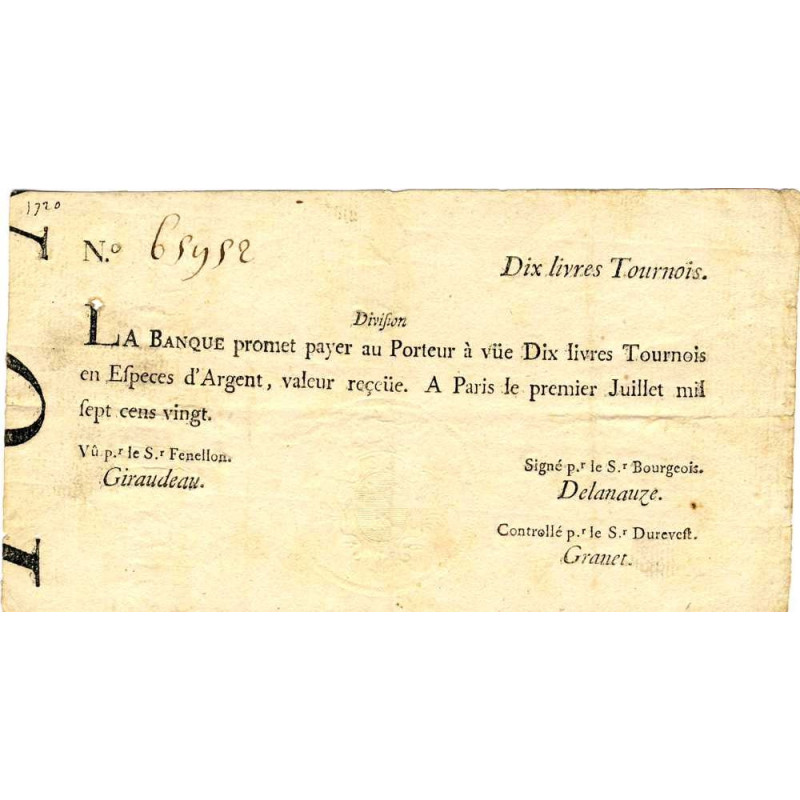 1720
N.o 65952
Dix livres Tournois.
Division
LA BANQUE promet payer au Porteur à vûe Dix livres Tournois
en Especes d'Argent, valeur reçeüe. A Paris le premier Juillet mil
sept cens vingt.
Vû p.r le S.r Fenellon.
Giraudeau.
Signé p.r le S.r Bourgeois.
Delanauze.
Controllé p.r le S.r Durevest.
Granet.